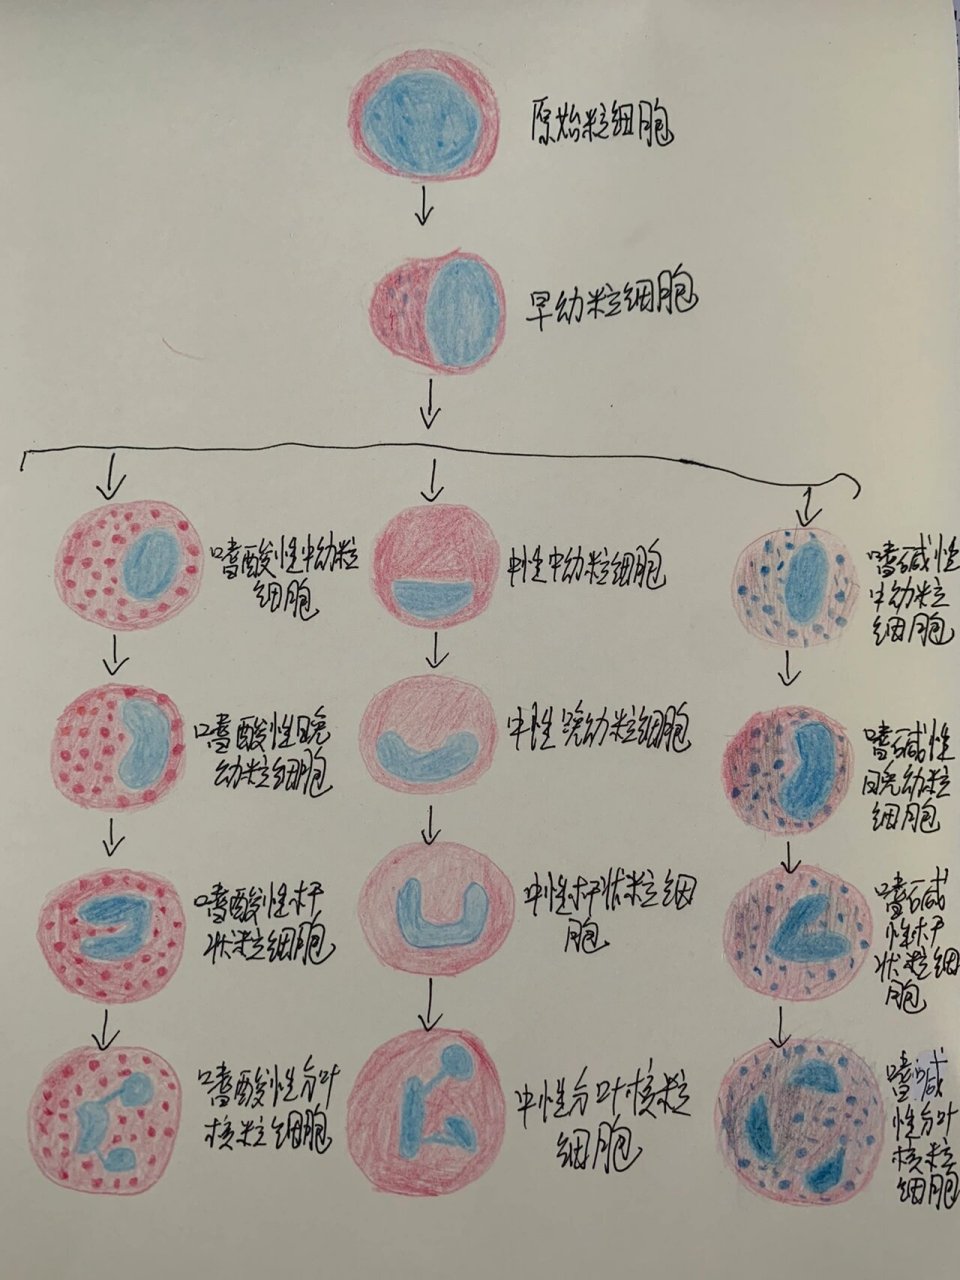 原始粒细胞
早幼粒细胞
嗜酸性中幼粒
细胞
中性中幼粒细胞
嗜碱性
中幼粒
细胞
嗜酸性晚
幼粒细胞
中性晚幼粒细胞
嗜碱性
晚幼粒
细胞
嗜酸性杆
状粒细胞
中性杆状粒细
胞
嗜碱
性杆
状粒细
胞
嗜酸性分叶
核粒细胞
中性分叶核粒
细胞
嗜碱
性分叶
核粒
细胞